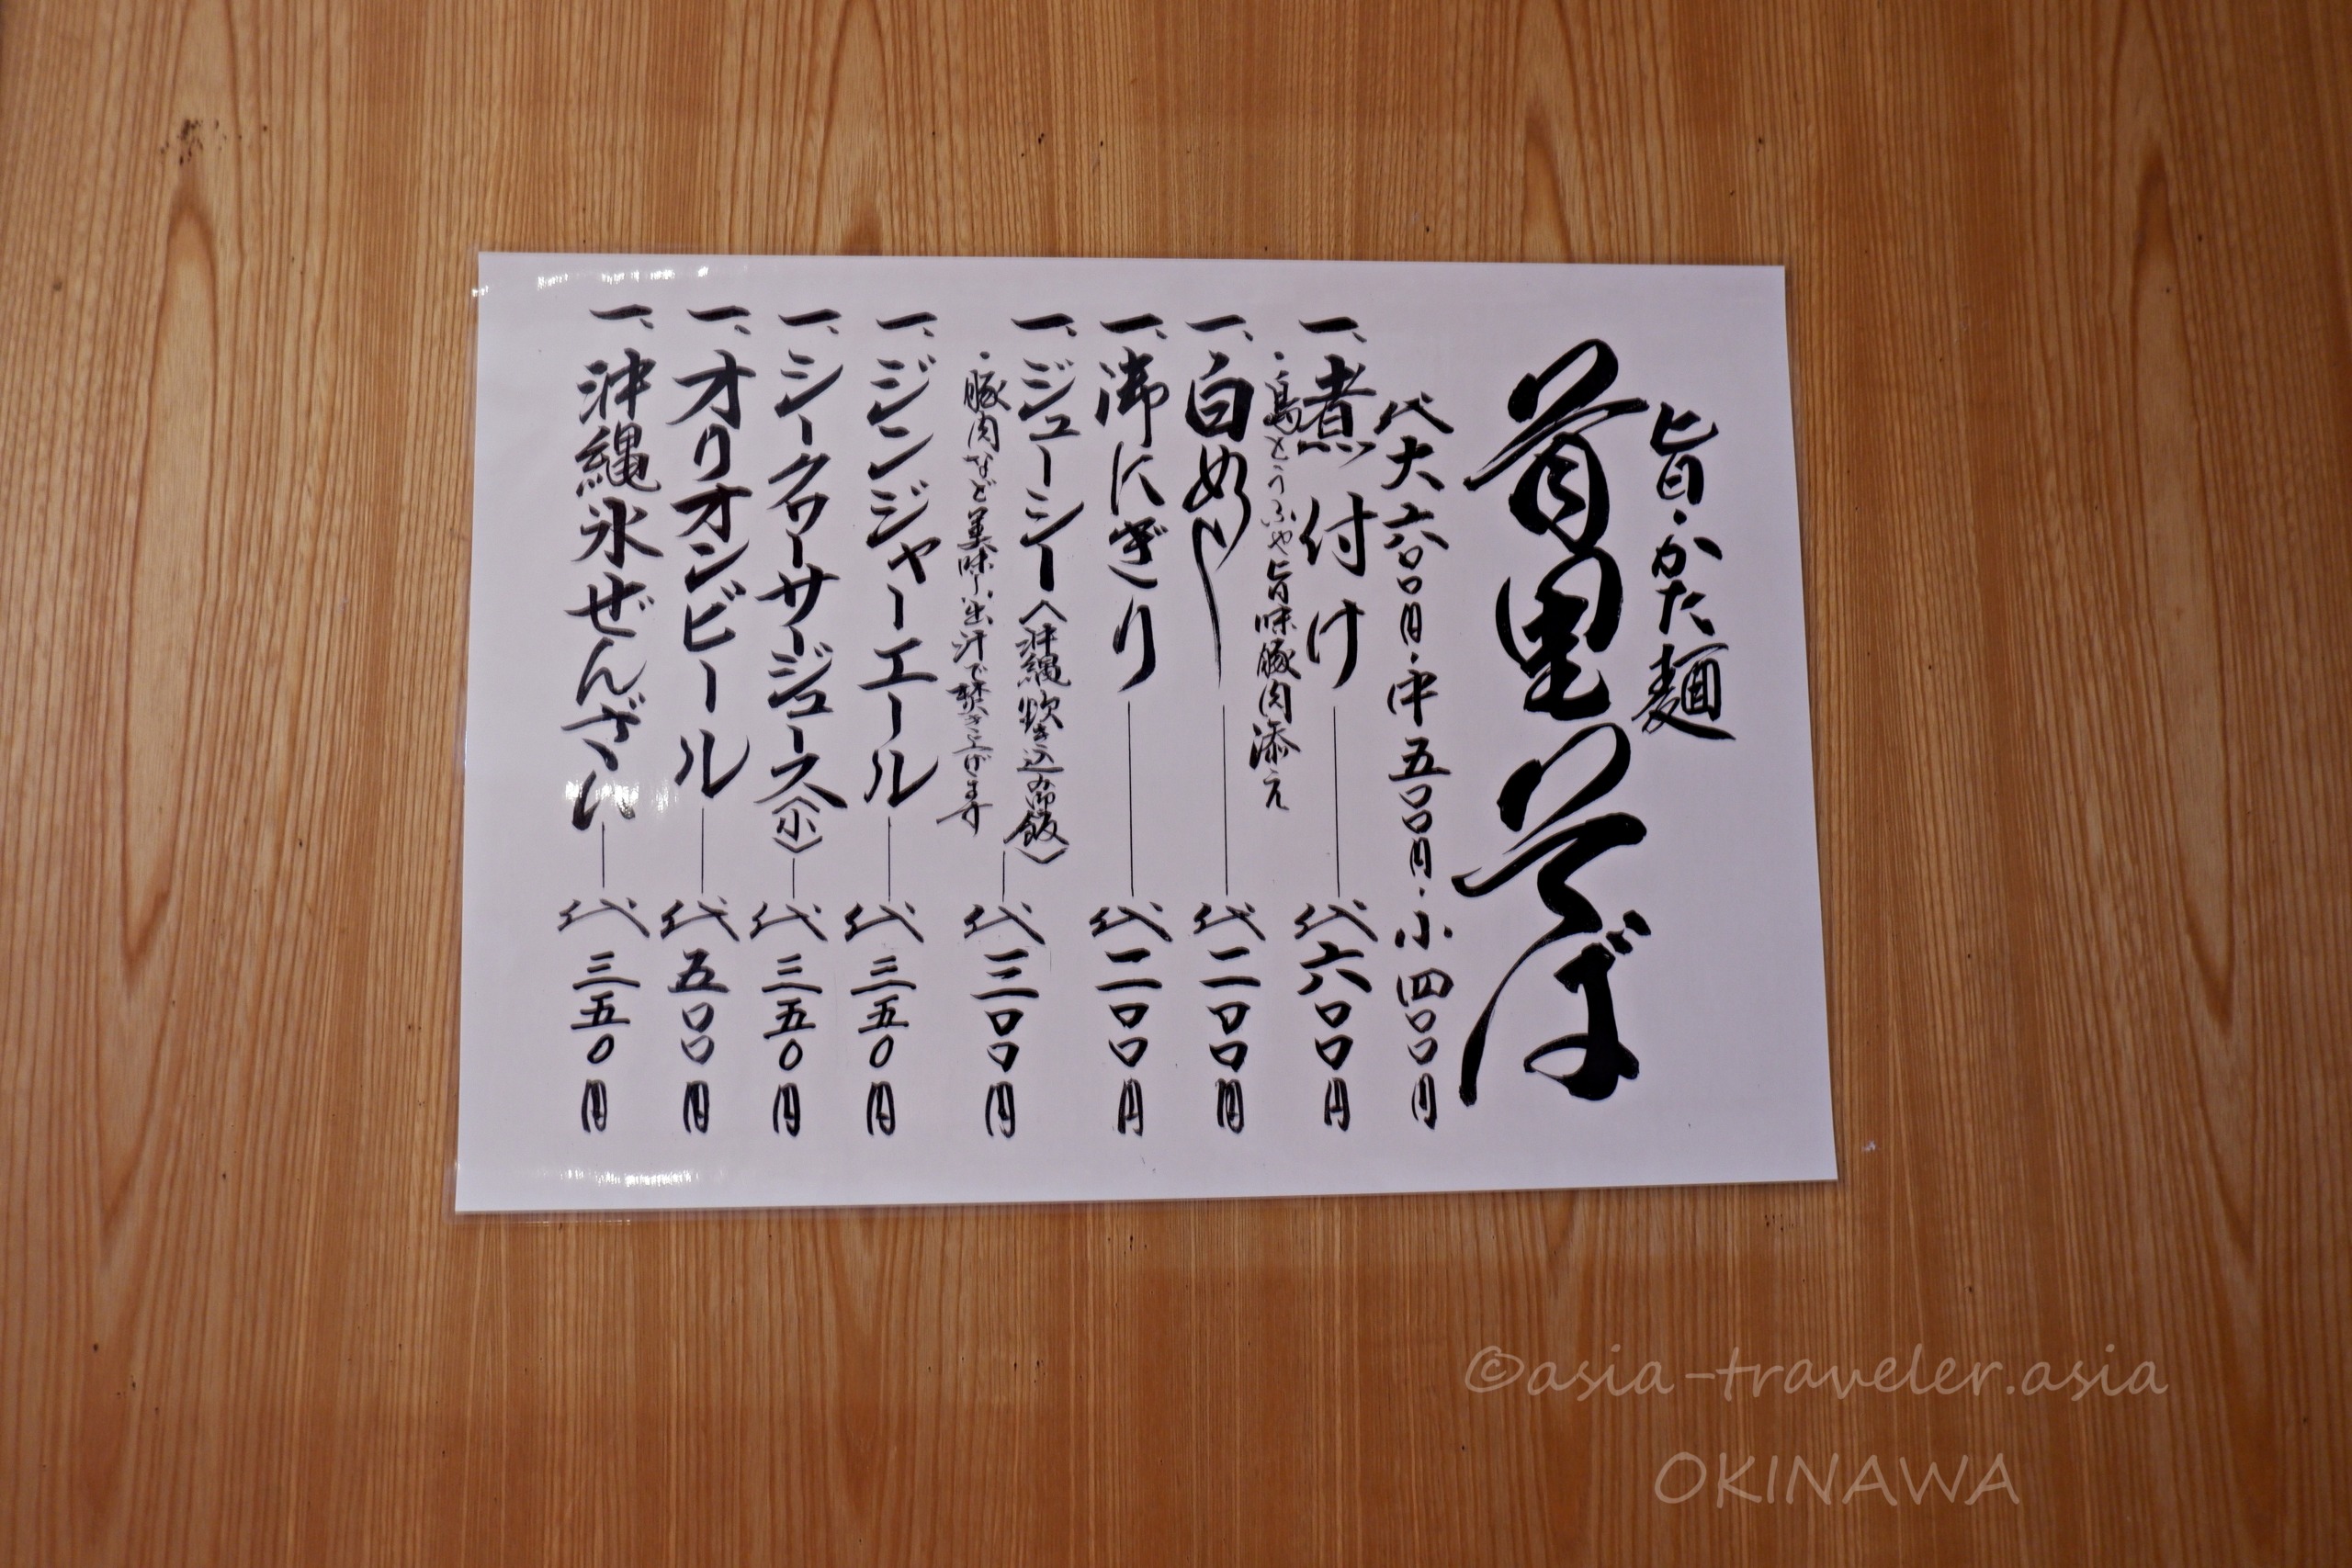 旨・かた麺
首里そば
代大六〇〇円・中五〇〇円・小四〇〇円
一、煮付け 代六〇〇円
・島とうふや旨味豚肉添え
一、白めし 代二〇〇円
一、御にぎり 代二〇〇円
一、ジューシー〈沖縄炊き込み御飯〉 代三〇〇円
・豚肉など美味し出汁で焚き上げます
一、ジンジャーエール 代三五〇円
一、シークヮーサージュース〈小〉 代三五〇円
一、オリオンビール 代五〇〇円
一、沖縄氷ぜんざい 代三五〇円
©asia-traveler.asia
OKINAWA